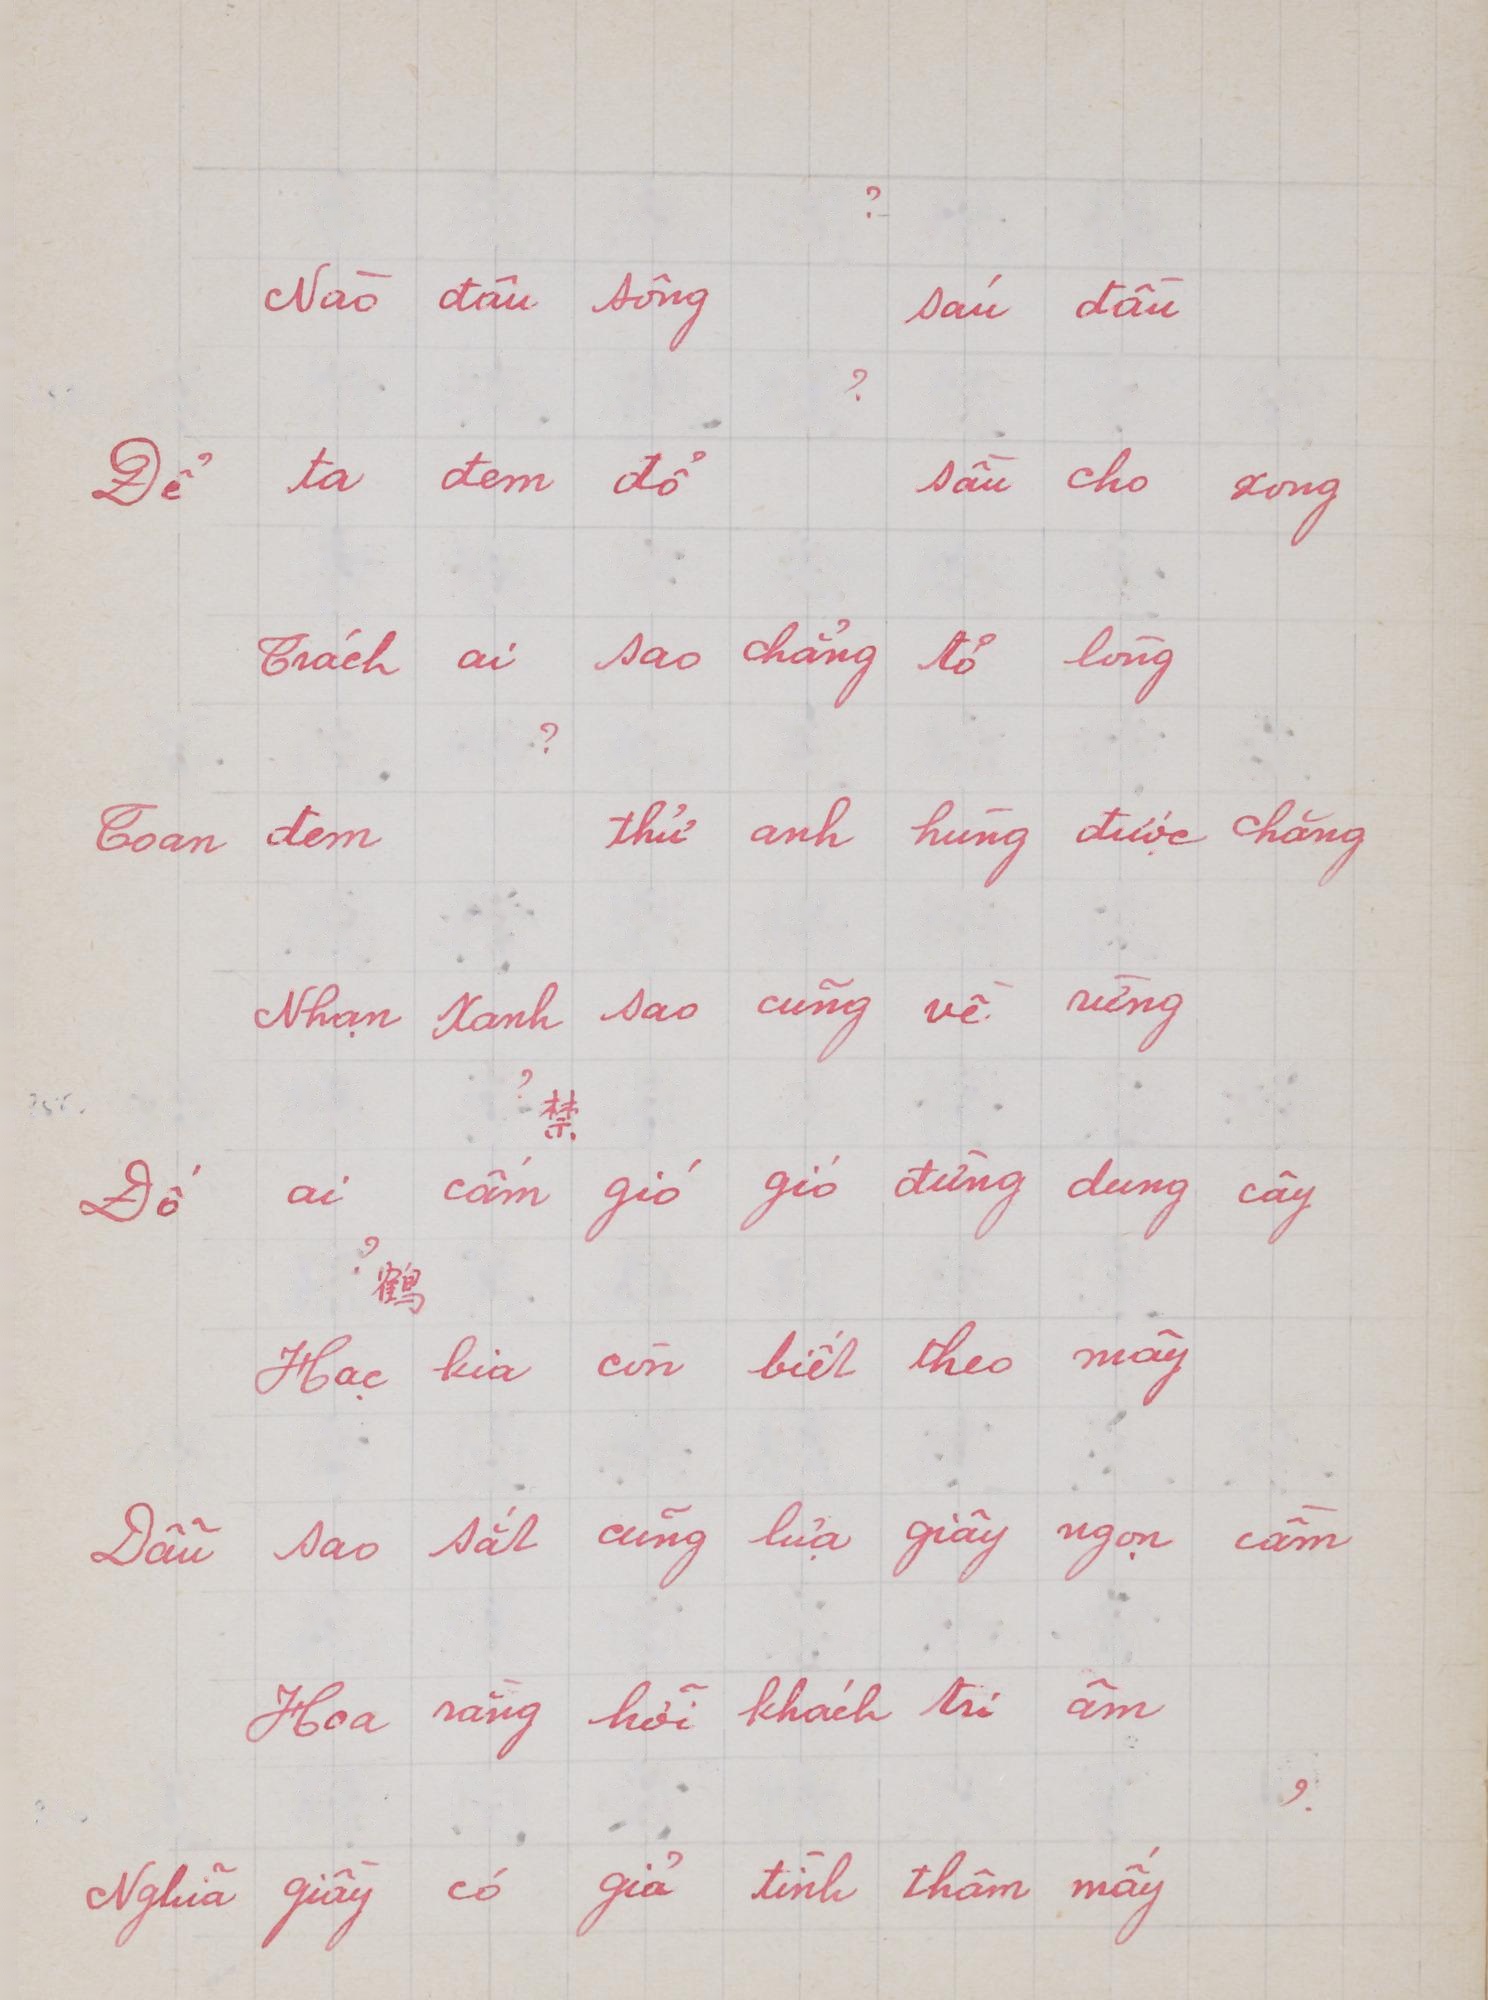 ?
Nào đâu sông sáu đầu
?
Để ta đem đổ sầu cho xong
Trách ai sao chẳng tỏ lòng
?
Toan đem thử anh hùng được chăng
Nhạn xanh sao cũng về rừng
? 禁
Đố ai cấm gió gió đừng dung cây
? 鶴
Hạc kia còn biết theo mây
Dẫu sao sắt cũng lụa giây ngọn cầm
Hoa rằng hỡi khách tri âm
?
Nghĩa giầy có giả tình thâm mấy